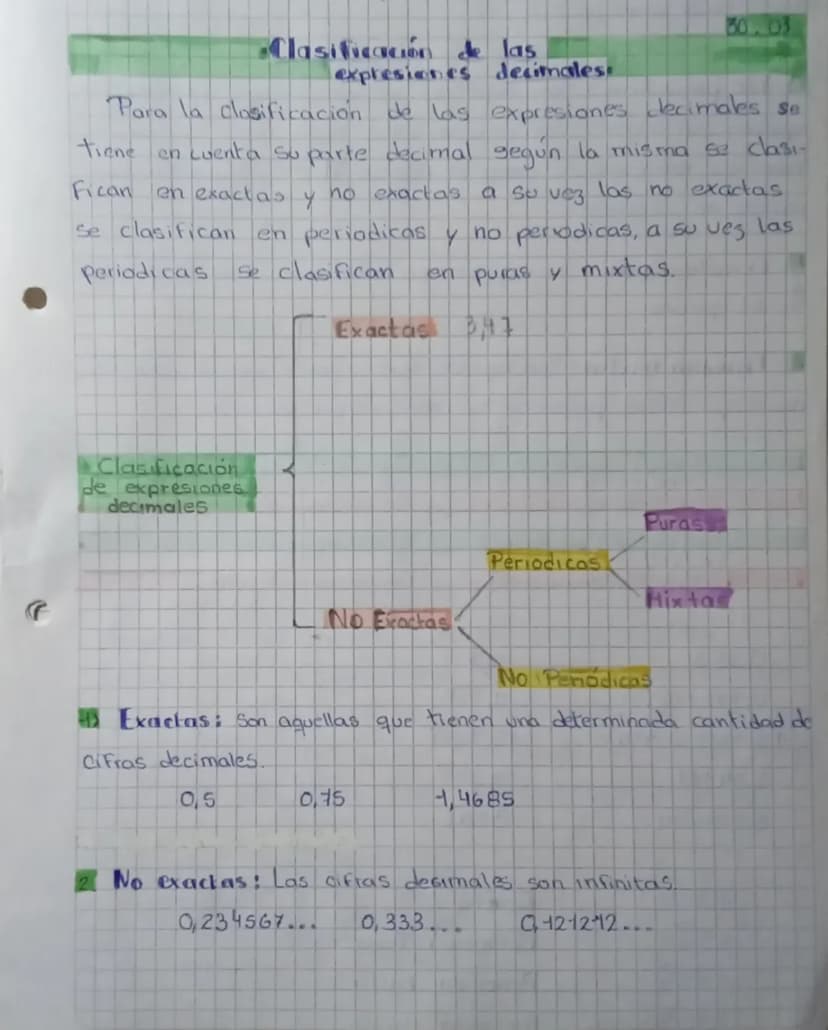 30.03
Clasificación de las
expresiones decimales.
Para la clasificación de las expresiones decimales se
tiene en cuenta su parte decimal según la misma se clasi-
fican en exactas y no exactas a su vez las no exactas
se clasifican en periodicas y no periodicas, a su ves las
periodicas se clasifican en puras y mixtas.
Exactas 3,47
Clasificación
de expresiones
decimales
Puras
Periodicas
Mixtas
No Exactas
No Periódicas
1) Exactas: Son aquellas que tienen una determinada cantidad de
cifras decimales.
0,5 0,75 1,4685
2 No exactas: Las cifras decimales son infinitas.
0,234567... 0,333... 0,121212...